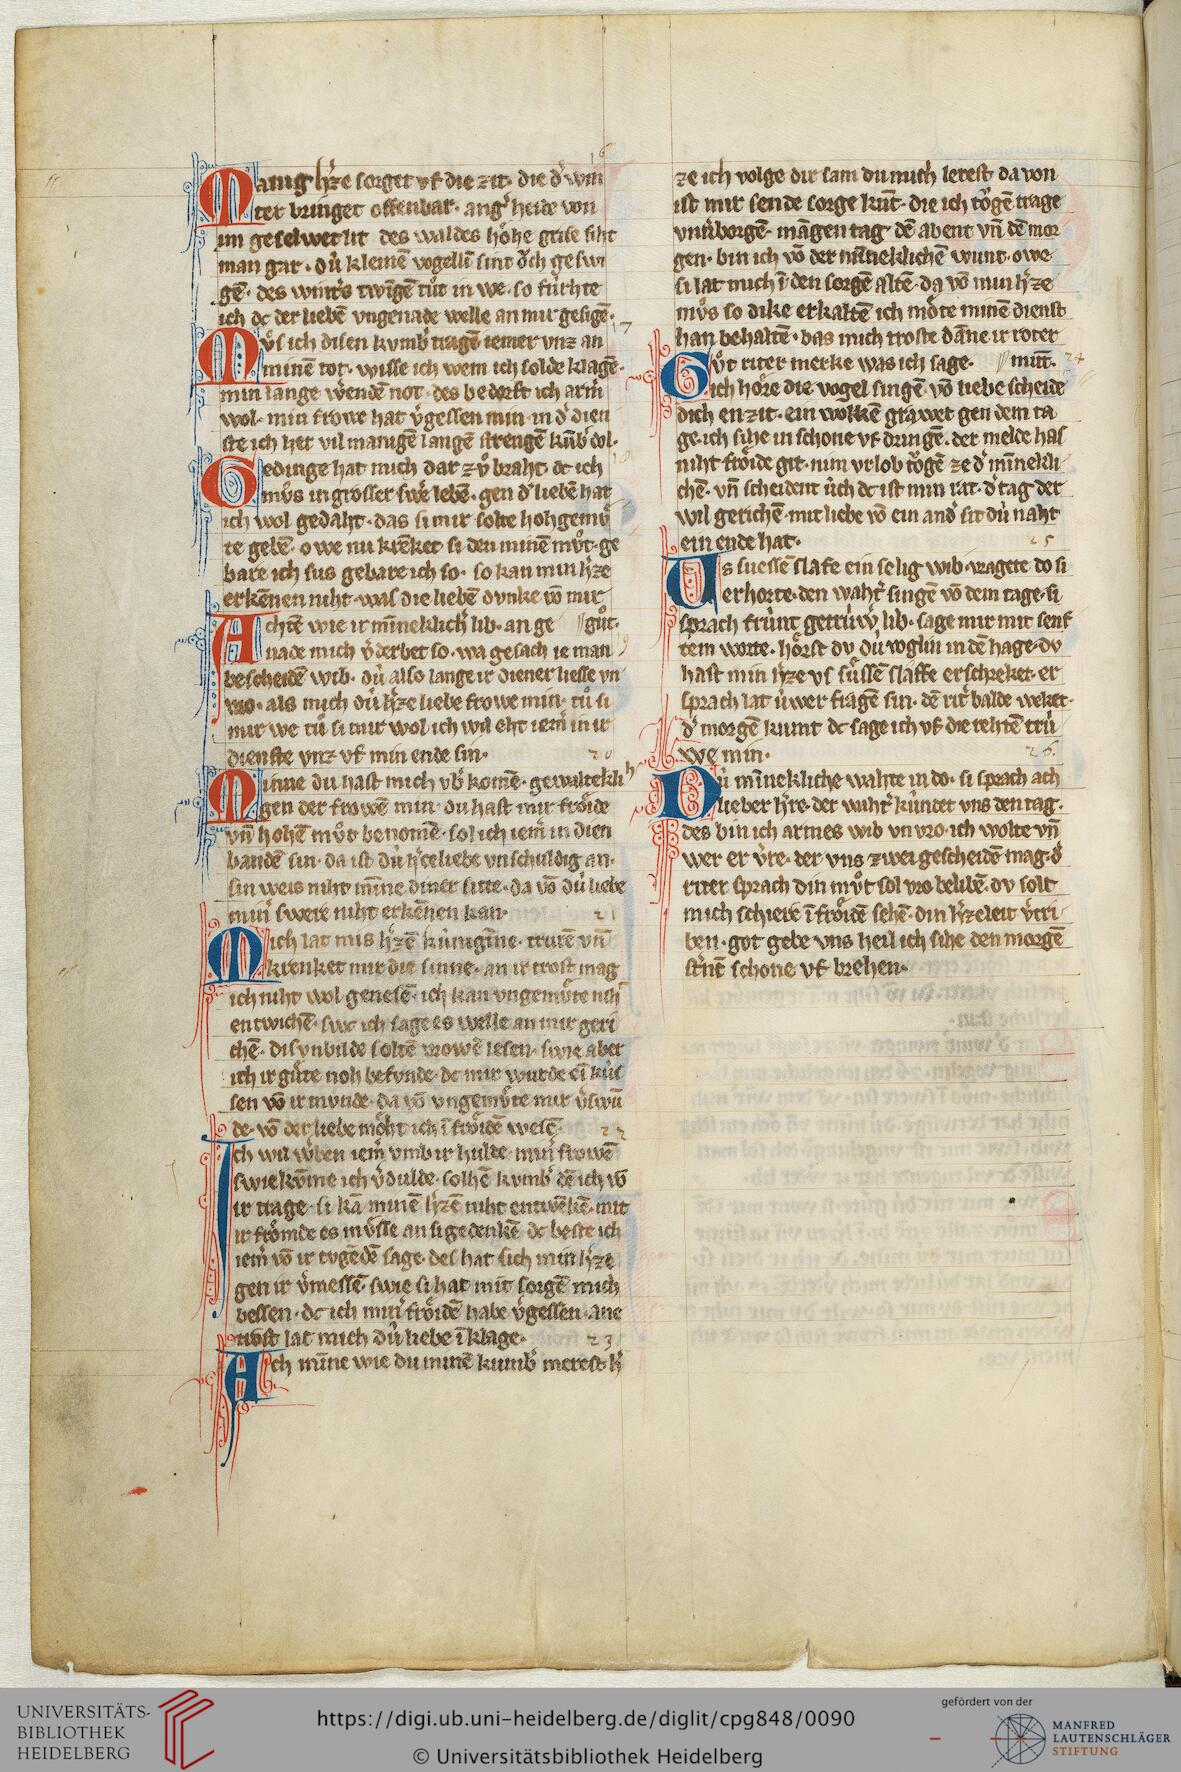 16
Manig h̾ze sorget vf die zit· die d̾ win
ter bringet offenbar· ang̾ heide von
im geselwet lit des waldes hoͤhe grise siht
man gar· dú kleinē vogellī sint oͮch geswi
gē· des wint̾s twīgē tuͦt in we· so fúrhte
ich dc der liebē vngenade welle an mir gesigē·
17
Muͦs ich disen kvmb̾ tragē iemer vnz an
minē tot· wisse ich wem ich solde klagē·
min lange w̾endē not· des bedorft ich arm̾
wol· min frowe hat v̾gessen min· in d̾ dien
ste ich her vil manigē langē strengē kūb̾ dol·
18
Gedinge hat mich dar zvͦ braht· dc ich
mvͦs in grosser sw̾e lebē· gen d̾ liebē hat
ich wol gedaht· das si mir solte hohgemvͤ
te gebē· owe nu krēket si den minē mvͦt· ge
bare ich sus gebare ich so· so kan min h̾ze
erkēnen niht· was die liebē dvnke vō mir
Achtē wie ir mīneklich̾ lib· an ge // guͦt·
19
nade mich v̾derbet so· wa gesach ie man
bescheidē wib· dú also lange ir diener liesse vn
vro· als mich dú h̾ze liebe frowe min· tuͦ si
mir we tuͦ si mir wol ich wil eht iem̾ in ir
dienste vnz vf min ende sin·
20
Minne du hast mich vb̾ komē· gewaltekli
gen der frowē min· du hast mir froͤide
vn̄ hohē mvͦt benomē· sol ich iem̾ in dien
bandē sin· da ist dú h̾zeliebe vnschuldig an·
sin weis niht mīne diner sitte· da vō dú liebe
min̾ swere niht erkēnen kan·
21
Mich lat mis h̾zē kúnigīne· trurē vn̄
krenket mir die sinne· an ir trost mag
ich niht wol genesē· ich kan vngemvͤte niht
entwichē· swc ich sage es welle an mir geri
chē· dis vnbilde soltē vrowē lesen· swie aber
ich ir guͤte noh befvnde· dc mir wurde eī kús
sen vō ir mvnde· da vō vngemvͤte mir v̾swū
de· vō der liebe moͤht ich ī froͤidē wesē·
22
Ich wil w̾ben iem̾ vmb ir hulde· min̾ frowē
swie kvme ich v̾dulde· solhē kvmb̾ dē ich vō
ir trage· si kā minē h̾zē niht entwēkē· mit
ir froͤmde es mvͤsse an si gedenkē· dc beste ich
iem̾ vō ir tvgēdē sage· des hat sich min h̾ze
gen ir v̾messē· swie si hat mit sorgē mich
besessen· dc ich min̾ froͤidē habe v̾gessen· ane
trost lat mich dú liebe ī klage·
23
Ach mīne wie du minē kumb̾ merest· h̾
ze ich volge dir sam du mich lerest da von
ist mir sende sorge kunt· die ich toͮgē trage
vnv̾borgē· māgen tag dē abent vn̄ dē mor
gen· bin ich vō der mīneklichē wunt· owe
si lat mich ī den sorgē altē· da vō mvn h̾ze
mvͦs so dike erkaltē ich moͤte minē dienst
han behaltē· das mich troste dāne ir roter
24
Guͦt riter merke was ich sage· // munt·
ich hoͤre die vogel singē· vō liebe scheide
dich en zit· ein wolkē grawet gen dem ta
ge· ich sihe in schone vf dringē· der melde has
niht froͤide git· nim vrlob toͮgē ze d̾ mīnekli
chē· vn̄ scheident úch dc ist min rat· d̾ tag der
wil gerichē· mit liebe vō ein and̾ sit dú naht
ein ende hat·
25
Us suessē slafe ein selig wib· vragete do si
erhorte· den waht̾ singē vō dem tage· si
sprach frúnt getrúw̾ lib· sage mir mit senf
tem worte· hoͤrst dv dú voglin in dē hage· dv
hast min h̾ze vs suͤssē slaffe erschreket· er
sprach lat úwer fragē sin· dē rit̾ balde weket·
d̾ morgē kunt dc sage ich vf die rehtē trú
we min·
26
Dú mīnekliche wahte in do· si sprach ach
lieber h̾re· der waht̾ kúndet vns den tag·
des bin ich armes wib vn vro· ich wolte vn̄
wer er v̾re· der vns zwei gescheidē mag· d̾
riter sprach din mvͦt sol vro belibē· dv solt
mich schiere ī froͤidē sehē· din h̾zeleit v̾tri
ben· got gebe vns heil ich sihe den morgē
st̾nē schone vf brehen·
UNIVERSITÄTS-
BIBLIOTHEK
HEIDELBERG
https://digi.ub.uni-heidelberg.de/diglit/cpg848/0090
© Universitätsbibliothek Heidelberg
gefördert von der
MANFRED
LAUTENSCHLÄGER
STIFTUNG